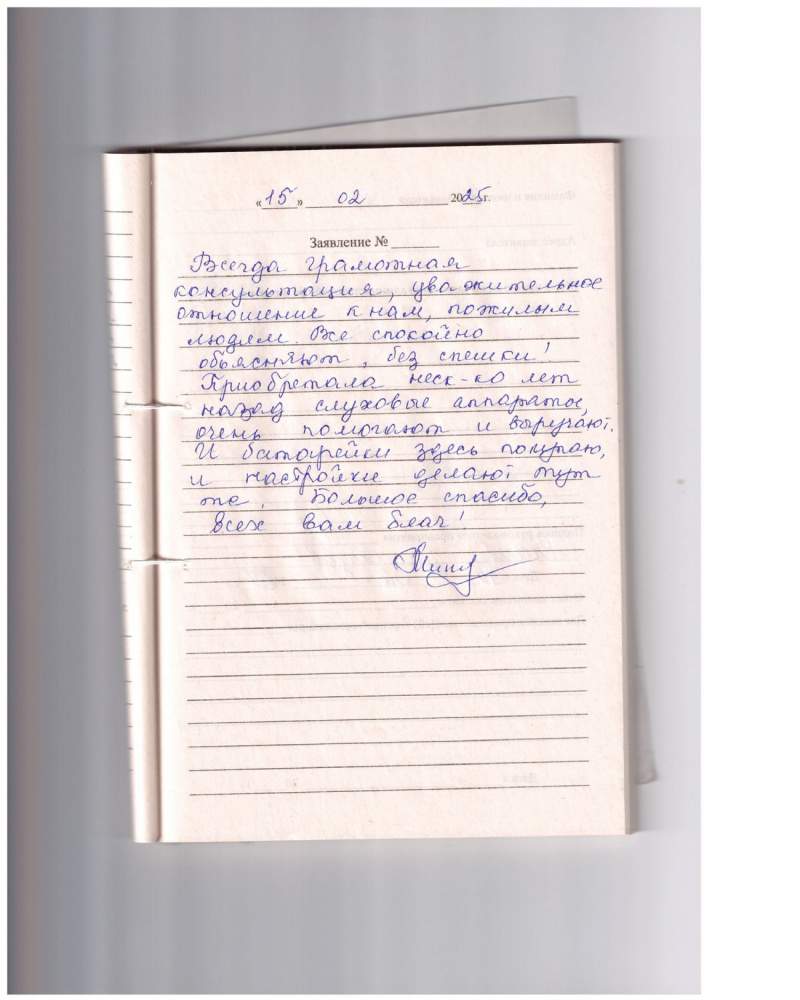 «15» 02 2025г.
Заявление №
Всегда грамотная
консультация, уважительное
отношение к нам, пожилым
людям. Все спокойно
объясняют, без спешки!
Приобретала неск-ко лет
назад слуховые аппараты,
очень помогают и выручают.
И батарейки здесь покупаю,
и настройки делают тут
же. Большое спасибо,
всех вам благ!